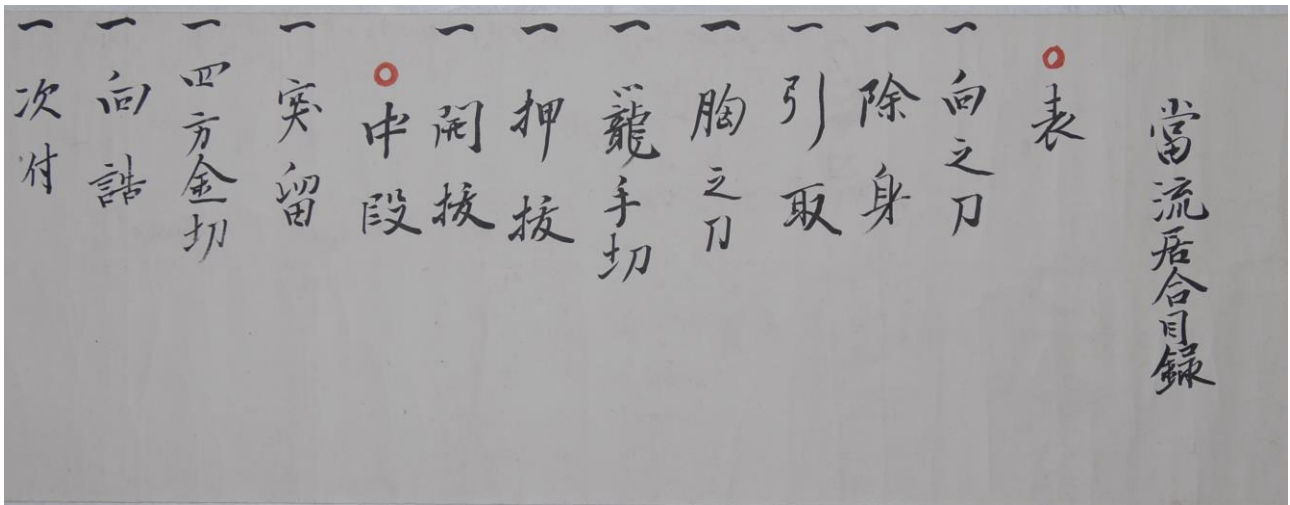 當流居合目録
○表
一向之刀
一除身
一引取
一胸之刀
一籠手切
一押抜
一開抜
○中段
一突留
一四方金切
一向詰
一次付